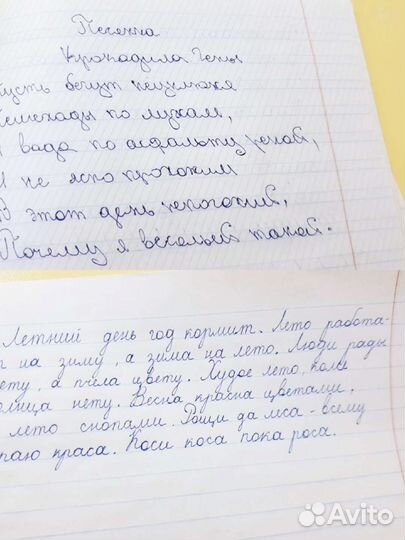 Песенка
Крокодила Гены
Пусть бегут неуклюже
Пешеходы по лужам,
А вада по асфальту рекой,
И не ясно прохожим
В этот день непогожий,
Почему я веселый такой.
Летний день год кормит. Лето работа-
ет на зиму, а зима на лето. Люди рады
лету, а пчела цвету. Худое лето, коли
солнца нету. Весна красна цветами,
лето снопами. Рощи да леса - всему
краю краса. Коси коса пока роса.
Avito